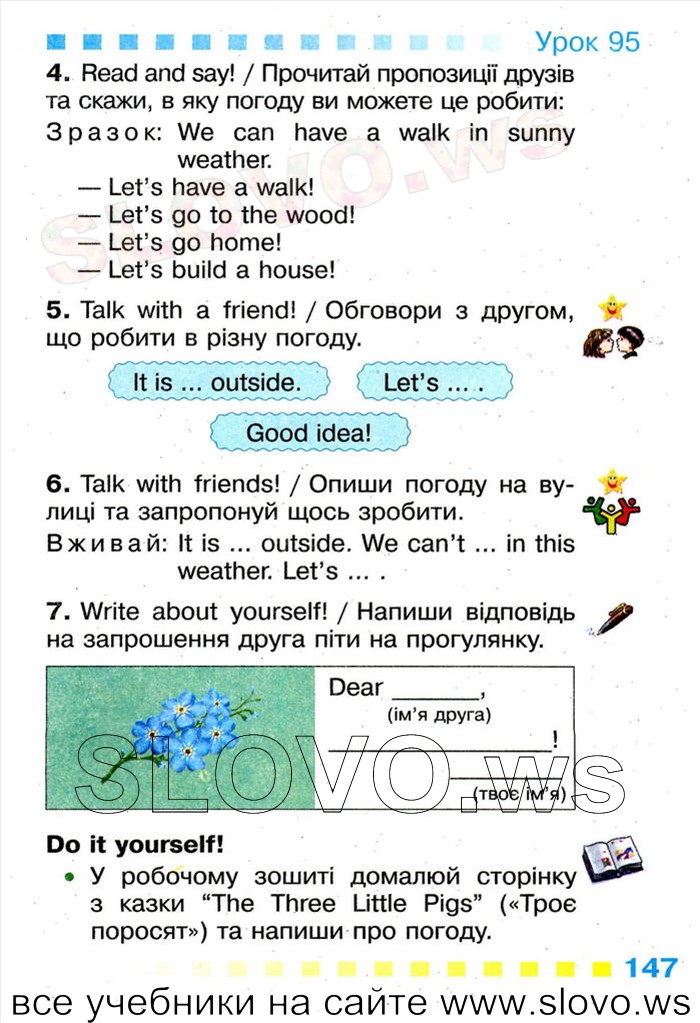 Урок 95
4. Read and say! / Прочитай пропозиції друзів
та скажи, в яку погоду ви можете це робити:
Зразок: We can have a walk in sunny
weather.
— Let's have a walk!
— Let's go to the wood!
— Let's go home!
— Let's build a house!
5. Talk with a friend! / Обговори з другом,
що робити в різну погоду.
It is ... outside. Let's ... .
Good idea!
6. Talk with friends! / Опиши погоду на ву-
лиці та запропонуй щось зробити.
Вживай: It is ... outside. We can't ... in this
weather. Let's ... .
7. Write about yourself! / Напиши відповідь
на запрошення друга піти на прогулянку.
Dear _______,
(ім'я друга)
__________________!
_________
(твоє ім'я)
SLOVO.ws
SLOVO.ws
Do it yourself!
• У робочому зошиті домалюй сторінку
з казки "The Three Little Pigs" («Троє
поросят») та напиши про погоду.
147
все учебники на сайте www.slovo.ws